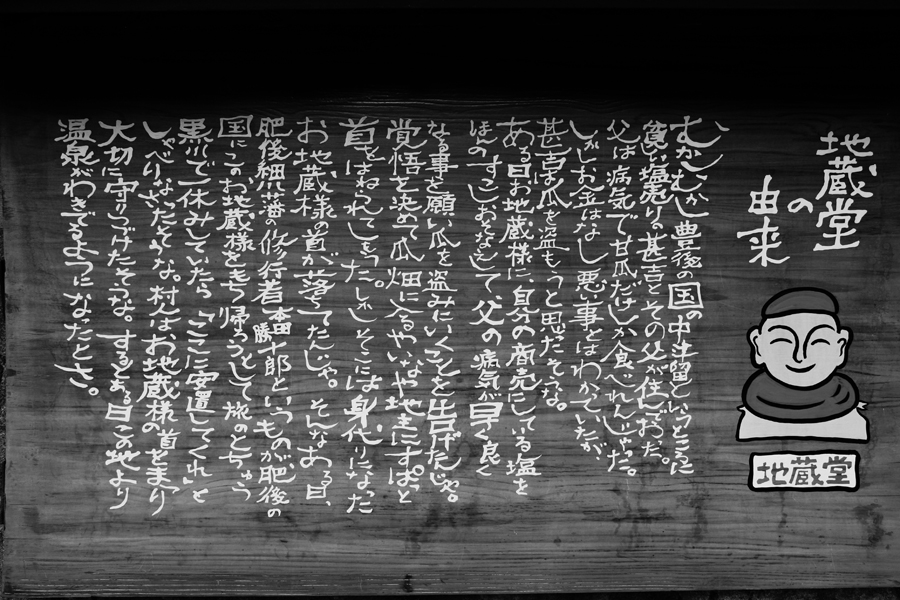 地蔵堂
の
由来
地蔵堂
むかしむかし豊後の国の中津留というところに
貧しい塩売りの甚吉とその父が住んでおった。
父は病気で甘瓜だけしか食べれんじゃった。
しかしお金はなし悪い事とはわかっていたが
甚吉は瓜を盗もうと思ったそうな。
ある日お地蔵様に、自分の商売にしている塩を
ほんのすこしおそなえして父の病気が早く良く
なる事を願い瓜を盗みにいくことを告げたんじゃ。
覚悟を決めて瓜畑に入るやいなや地主にすぱっと
首をはねられてしもうた。しかしそこには身代りになった
お地蔵様の首が落ちてたんじゃ。そんなある日、
肥後細川藩の修行者本田勝十郎というものが肥後の
国にこのお地蔵様をもち帰ろうとして旅のとちゅう
黒川で一休みしていたら「ここに安置してくれ」と
しゃべりなさったそうな。村人はお地蔵様の首をまつり
大切に守りつづけたそうな。するとある日この地より
温泉がわきでるようになったとさ。